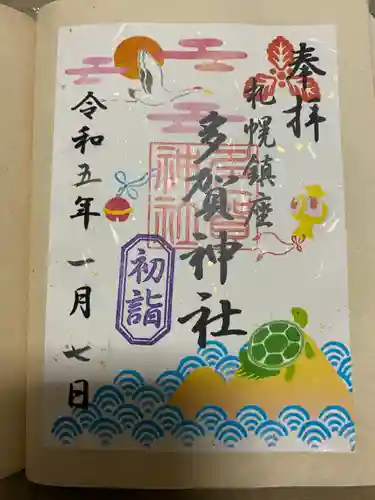 奉拝
札幌鎮座
多賀神社
多賀
神社
初詣
令和五年一月七日